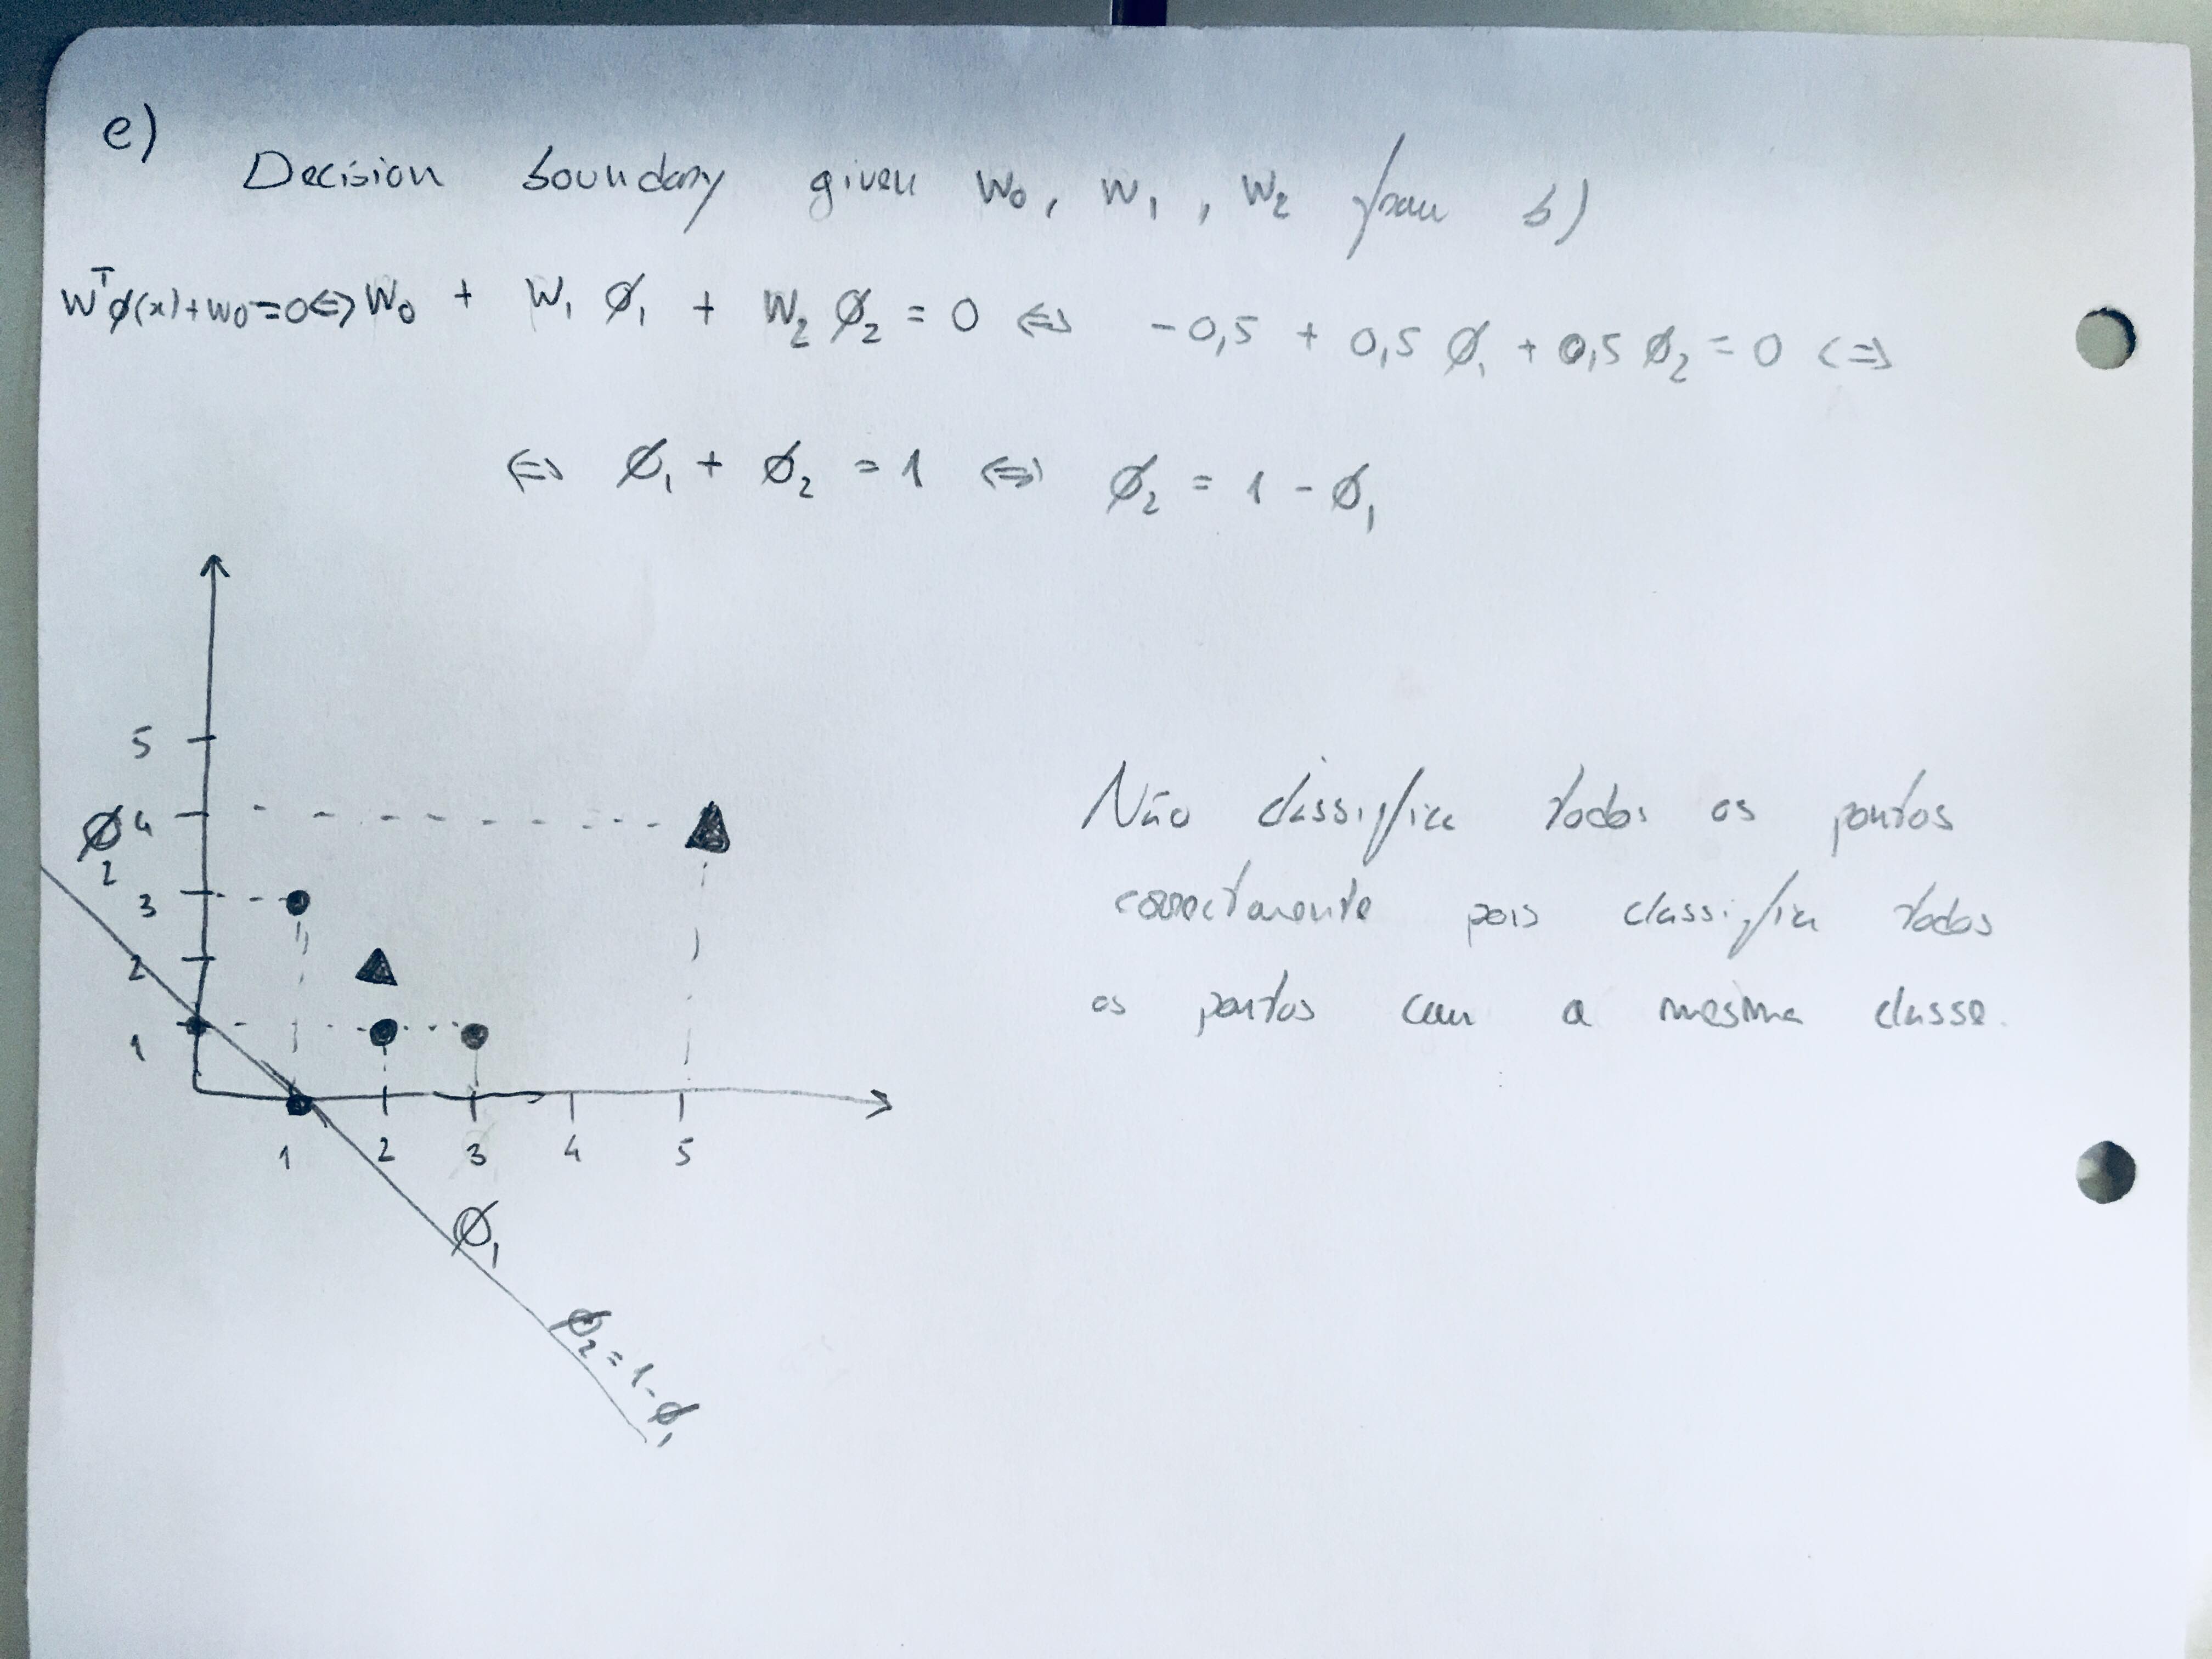 e)
Decision boundary given w₀, w₁, w₂ from b)
wᵀφ(x)+w₀=0 ⇔ w₀ + w₁ φ₁ + w₂ φ₂ = 0 ⇔ -0,5 + 0,5 φ₁ + 0,5 φ₂ = 0 ⇔
⇔ φ₁ + φ₂ = 1 ⇔ φ₂ = 1 - φ₁
5
φ₂ 4
3
2
1
1 2 3 4 5
φ₁
φ₂ = 1 - φ₁
Não classifica todos os pontos
correctamente pois classifica todos
os pontos com a mesma classe.